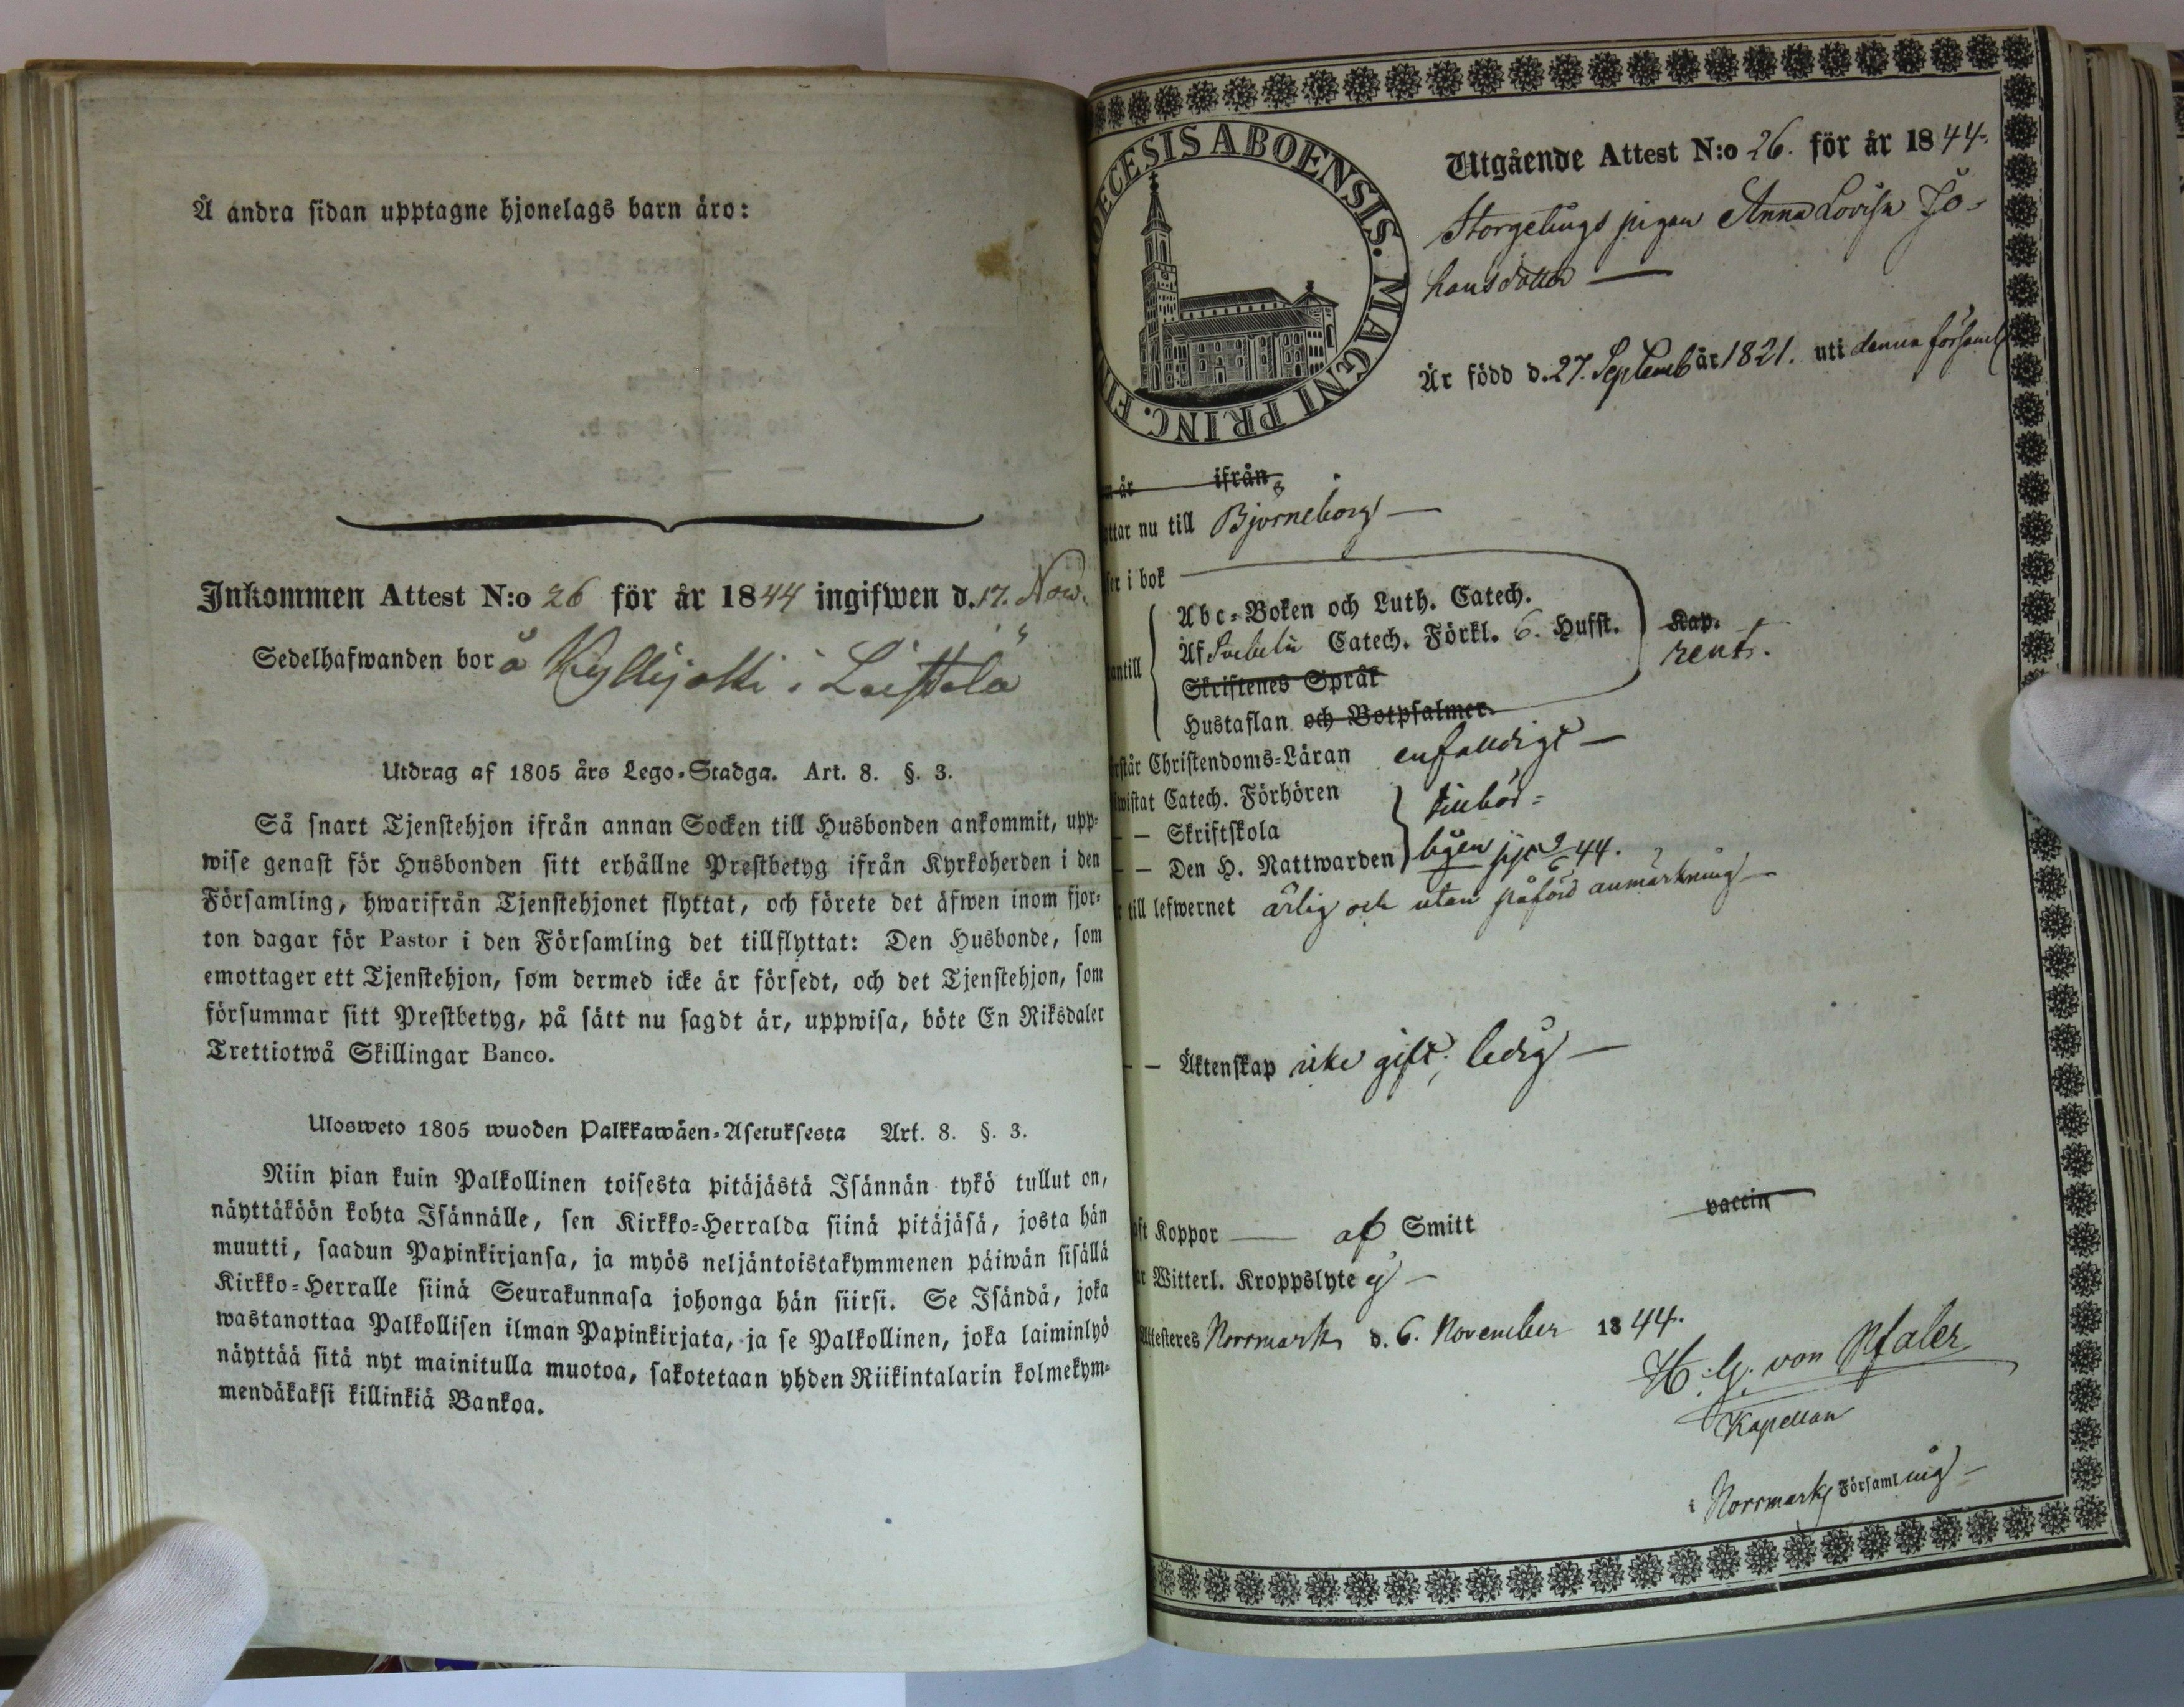 Å andra sidan upptagne hjonelags barn äro:
Inkommen Attest N:o 26 för år 1844 ingifwen d. 17. Nov.
Sedelhafwanden bor å Kyllijokki i Leistilä
Utdrag af 1805 års Lego-Stadga. Art. 8. §. 3.
Så snart Tjenstehjon ifrån annan Socken till Husbonden ankommit, upp-
wise genast för Husbonden sitt erhållne Prestbetyg ifrån Kyrkoherden i den
Församling, hwarifrån Tjenstehjonet flyttat, och förete det äfwen inom fjor-
ton dagar för Pastor i den Församling det tillflyttat: Den Husbonde, som
emottager ett Tjenstehjon, som dermed icke är försedt, och det Tjenstehjon, som
försummar sitt Prestbetyg, på sätt nu sagdt är, uppwisa, böte En Riksdaler
Trettiotwå Skillingar Banco.
Ulosweto 1805 wuoden Palkkawäen-Asetuksesta Art. 8. §. 3.
Niin pian kuin Palkollinen toisesta pitäjästä Isännän tykö tullut on,
näyttäköön kohta Isännälle, sen Kirkko-Herralda siinä pitäjäsä, josta hän
muutti, saadun Papinkirjansa, ja myös neljäntoistakymmenen päiwän sisällä
Kirkko-Herralle siinä Seurakunnasa johonga hän siirsi. Se Isändä, joka
wastanottaa Palkollisen ilman Papinkirjata, ja se Palkollinen, joka laiminlyö
näyttää sitä nyt mainitulla muotoa, sakotetaan yhden Riikintalarin kolmekym-
mendäkaksi killinkiä Bankoa.
OECESIS ABOENSIS. MAGNI PRINC. FI
Utgående Attest N:o 26. för år 1844.
Storgetings pigan Anna Lovisa Jo-
hansdotter —
Är född d. 27. Septemb år 1821. uti denna församl
m år ifrån
ttar nu till Björneborg —
ser i bok
antill
Abc-Boken och Luth. Catech.
Af Svebelii Catech. Förkl. 6. Hufst.
Skriftenes Språk
Hustaflan och Botpsalmer.
Kap.
rent.
rstår Christendoms-Läran enfalldigt —
wistat Catech. Förhören
— Skriftskola
— — Den H. Nattwarden
tillbör-
ligen
44.
till lefwernet ärlig och utan påförd anmärkning —
— — Äktenskap icke gift, ledig —
ft Koppor — af Smitt
vaccin
r Witterl. Kroppslyte ej —
Attesteres Norrmark d. 6. November 1844.
H. G. von Pfaler
Kapellan
i Norrmarks Församlning —